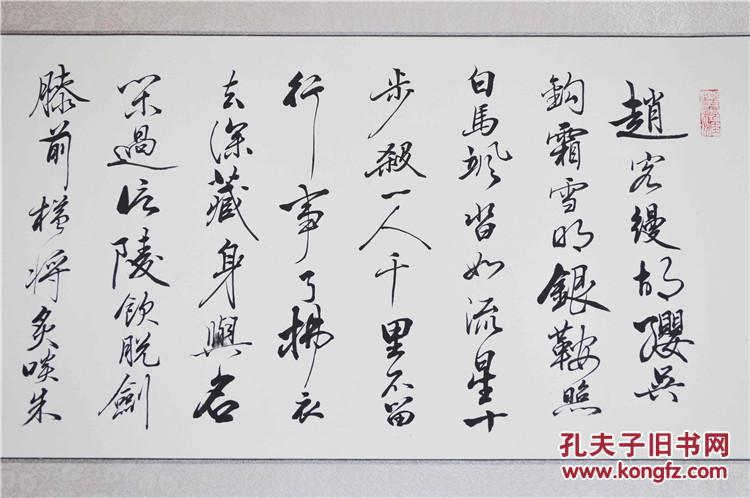 趙客縵胡纓吳
鈎霜雪明銀鞍照
白馬颯沓如流星十
步殺一人千里不留
行事了拂衣
去深藏身與名
閑過信陵飲脫劍
膝前橫將炙啖朱
孔夫子旧书网
www.kongfz.com